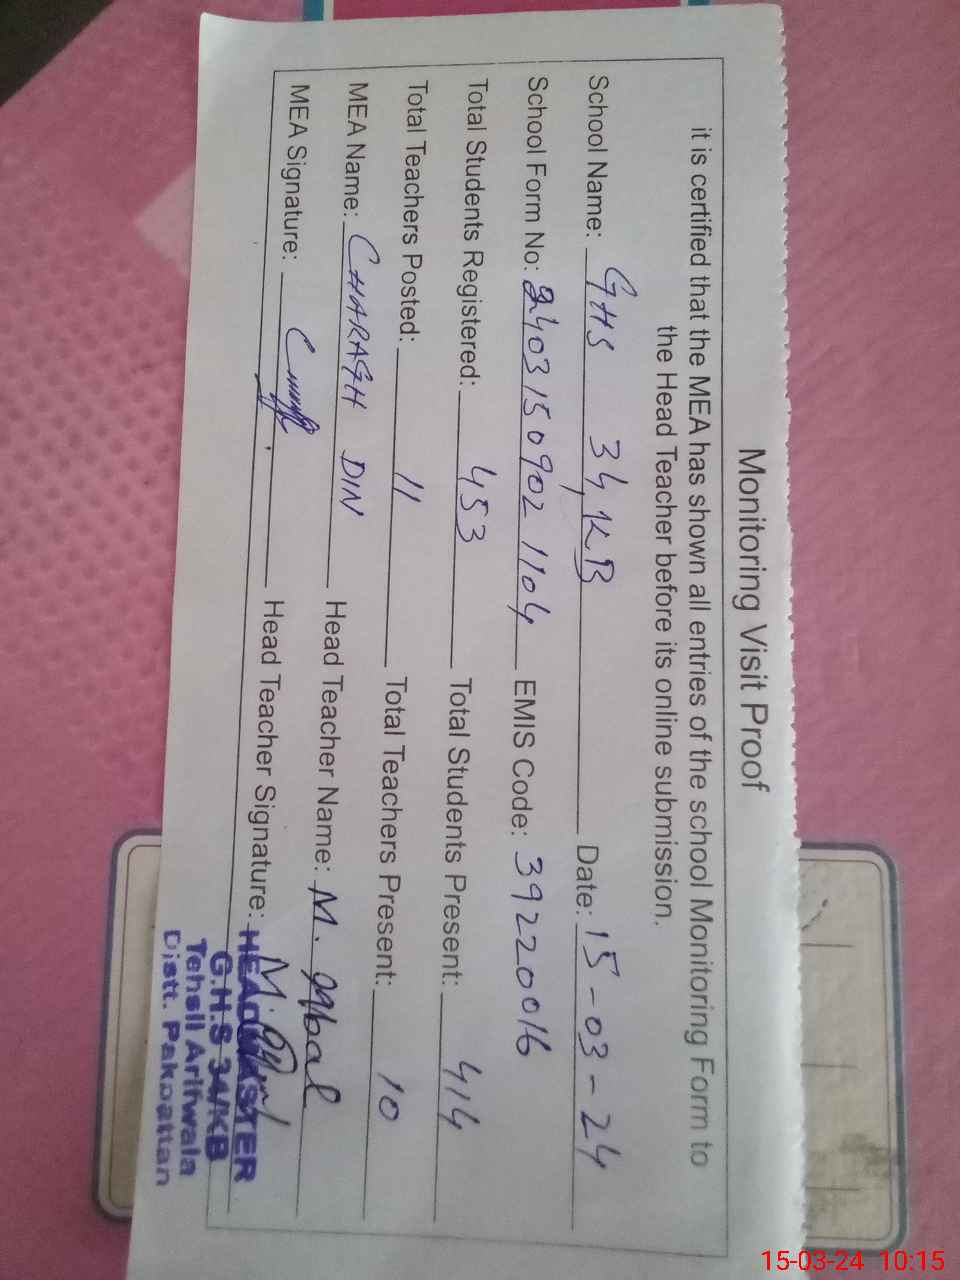 Monitoring Visit Proof
it is certified that the MEA has shown all entries of the school Monitoring Form to
the Head Teacher before its online submission.
School Name: GHS 34/KB Date: 15-03-24
School Form No: 2403150902 1104 EMIS Code: 39220016
Total Students Registered: 453 Total Students Present: 414
Total Teachers Posted: 11 Total Teachers Present: 10
MEA Name: CHARAGH DIN Head Teacher Name: M. Iqbal
MEA Signature: Head Teacher Signature: M. Iqbal
HEADMASTER
G.H.S 34/KB
Tehsil Arifwala
Distt. Pakpattan
15-03-24 10:15